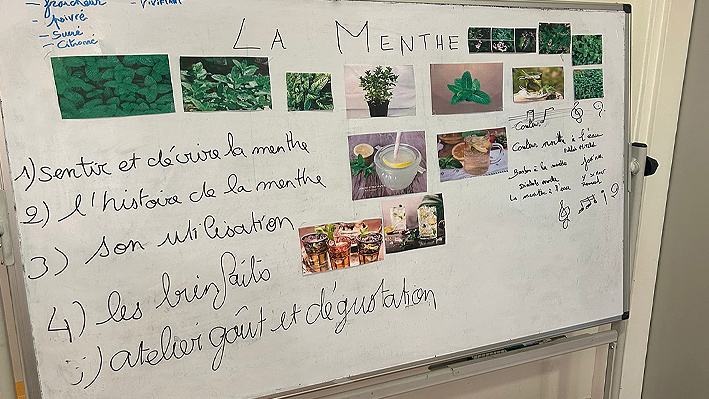 - fraîcheur
- vivifiant
- poivré
- Sucré
- Citronné
LA MENTHE
1) sentir et décrire la menthe
2) l'histoire de la menthe
3) son utilisation
4) les bienfaits
5) atelier goût et dégustation
Couleur
Couleur menthe à l'eau
Bonbon à la menthe
Diabolo menthe
La menthe à l'eau